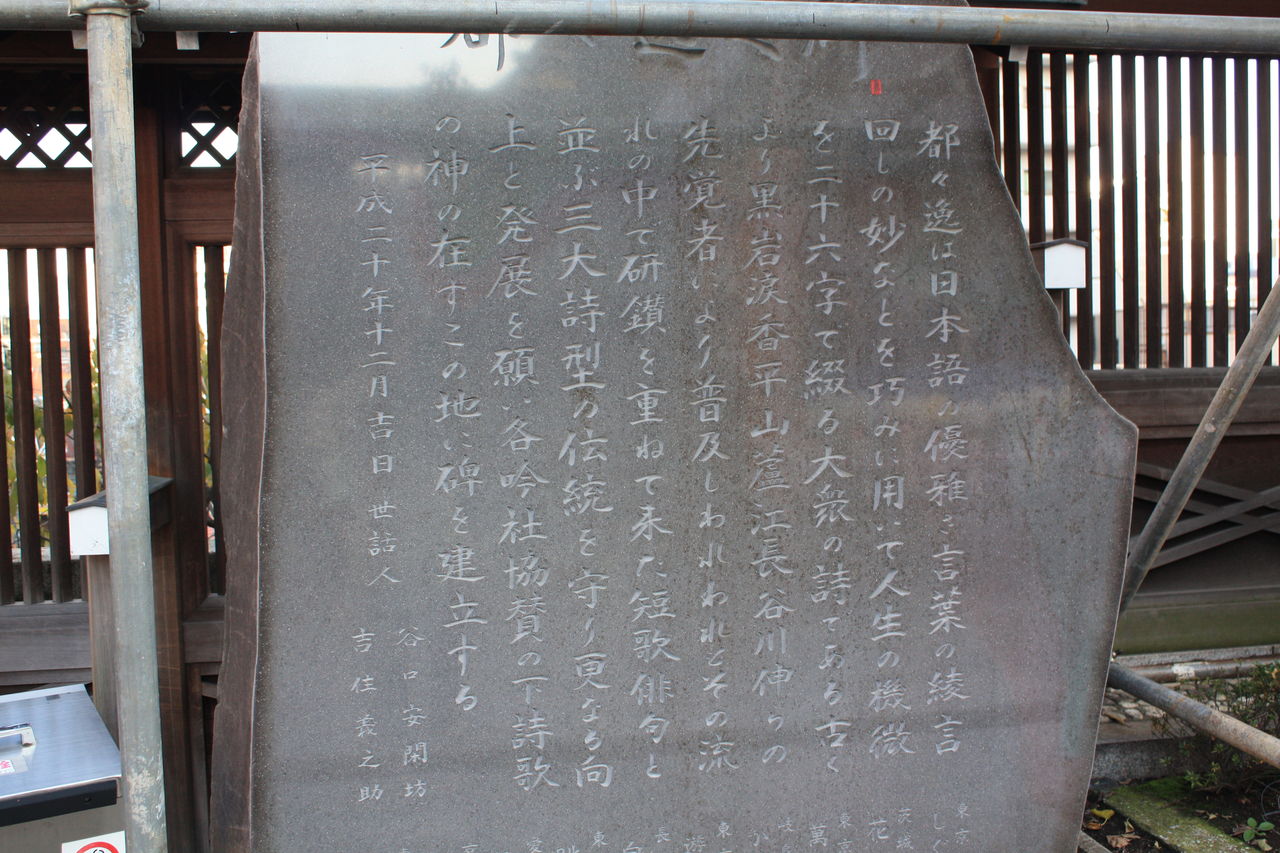 都々逸は日本語の優雅さ言葉の綾言
回しの妙なとを巧みに用いて人生の機微
を二十六字て綴る大衆の詩てある古く
より黒岩涙香平山蘆江長谷川伸らの
先覚者により普及しわれわれもその流
れの中て研鑚を重ねて来た短歌俳句と
並ぶ三大詩型の伝統を守り更なる向
上と発展を願い各吟社協賛の下詩歌
の神の在すこの地に碑を建立する
平成二十年十二月吉日 世話人 谷口安閑坊
吉住義之助
東京
しぐ
茨城
花
東京
萬
長